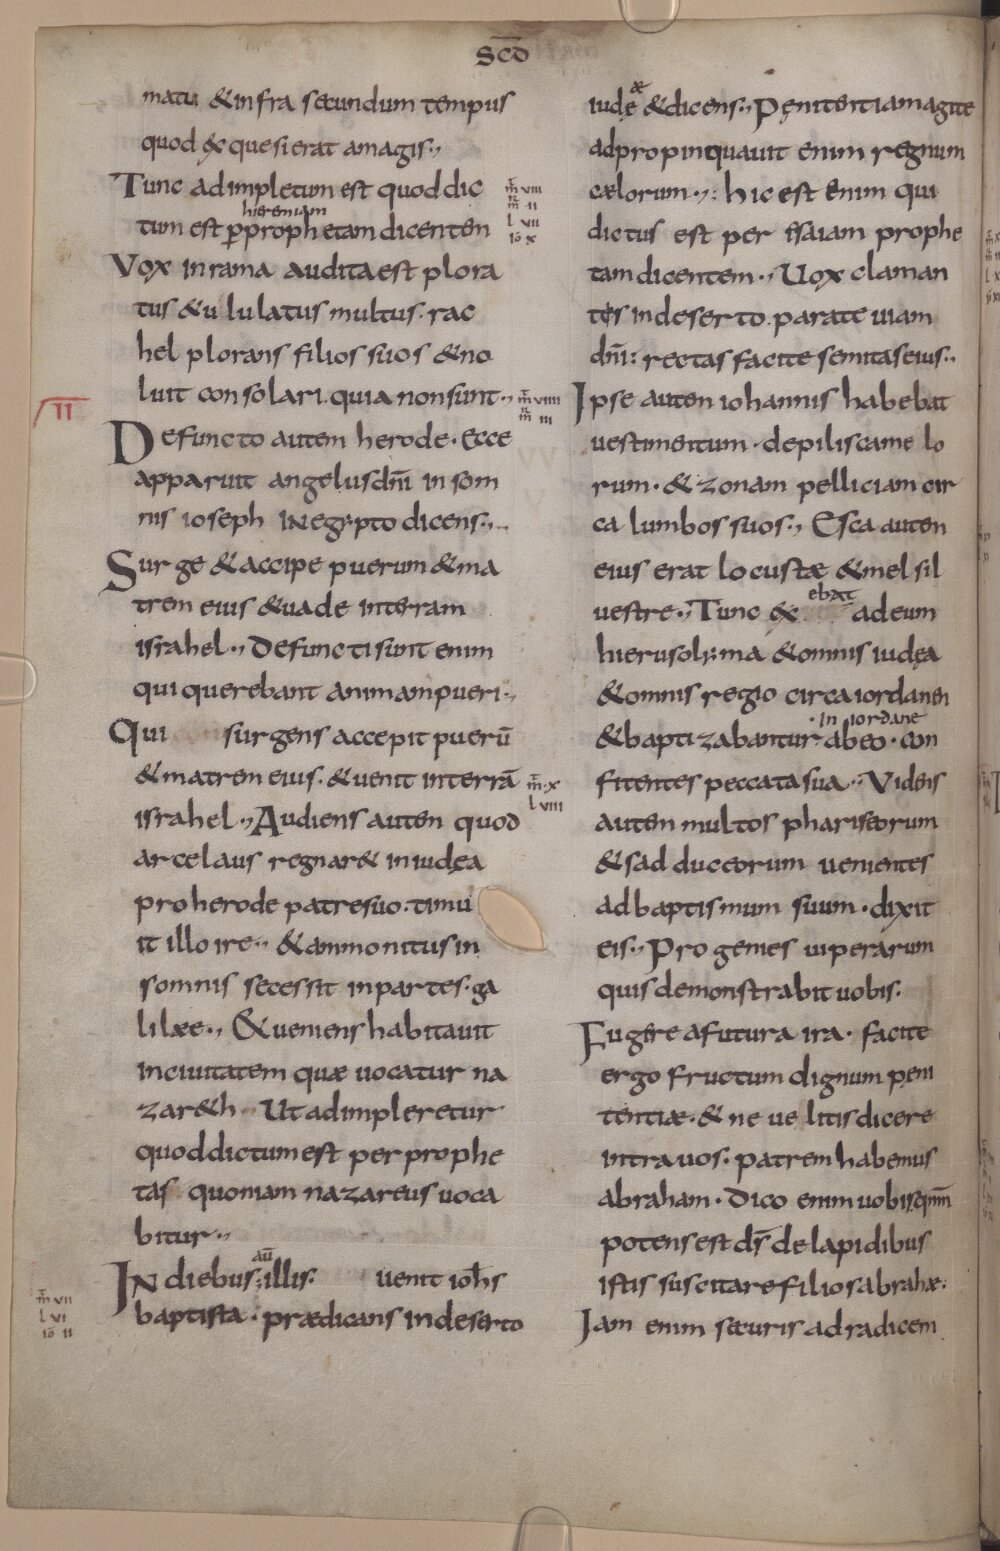 SCD̄
matu &infra secundum tempus
quod exquesierat amagis.,,
Tunc adimpletum est quod dic
hieremiam
tum est ꝑprophetam dicentem
Vox in rama audita est plora
tus &ululatus multus. rac
hel plorans filios suos &no
luit consolari. quia non sunt.,,
Defuncto autem herode. Ecce
apparuit angelus dn̄i in som
nis ioseph INegypto dicens.,,
Surge &accipe puerum &ma
trem eius &uade interram
israhel.,, Defuncti sunt enim
qui querebant animam pueri.,
Qui surgens accepit puerū
&matrem eius. &uenit interrā
israhel.,, Audiens autem quod
arcelaus regnar& in iudęa
pro herode patre suo. timu
it illo ire.,, &ammonitus in
somnis secessit in partes. ga
lilææ., &ueniens habitauit
inciuitatem quæ uocatur na
zar&h Ut adimpleretur
quod dictum est per prophe
tas quoniam nazareus uoca
bitur.,,
aū
IN diebus illis. uenit ioh̄s
baptista. prædicans indeserto
m̄ VIII
m̄ II
l VII
iō X
II
m̄ VIIII
m̄ III
m̄ X
l VIII
m̄ VII
l VI
iō II
æ
iudę &dicens.,, Pęnitentiam agite
adpropinquauit enim regnum
cælorum.,: hic est enim qui
dictus est per Esaiam prophe
tam dicentem., Uox claman
tis indeserto. parate uiam
dn̄i: rectas facite semitas eius.,
Ipse autem iohannis habebat
uestimentum. depilis came lo
rum. & zonam pelliciam cir
ca lumbos suos., Esca autem
eius erat locustæ &mel sil
ebat
uestre., Tunc ex adeum
hierusolyma &omnis iudęa
&omnis regio circa iordanen
in iordane
&baptizabantur abeo. con
fitentes peccata sua.,, Videns
autem multos phariseorum
&sadduceorum uenientes
adbaptismum suum. dixit
eis., Progenies uiperarum
quis demonstrabit uobis.
Fugire afutura ira. facite
ergo fructum dignum peni
tentiæ. & ne uelitis dicere
intra uos. patrem habemus
abraham. dico enim uobis qnm̄
potens est dς̄ de lapidibus
istis suscitare filios abrahæ.
Iam enim securis adradicem